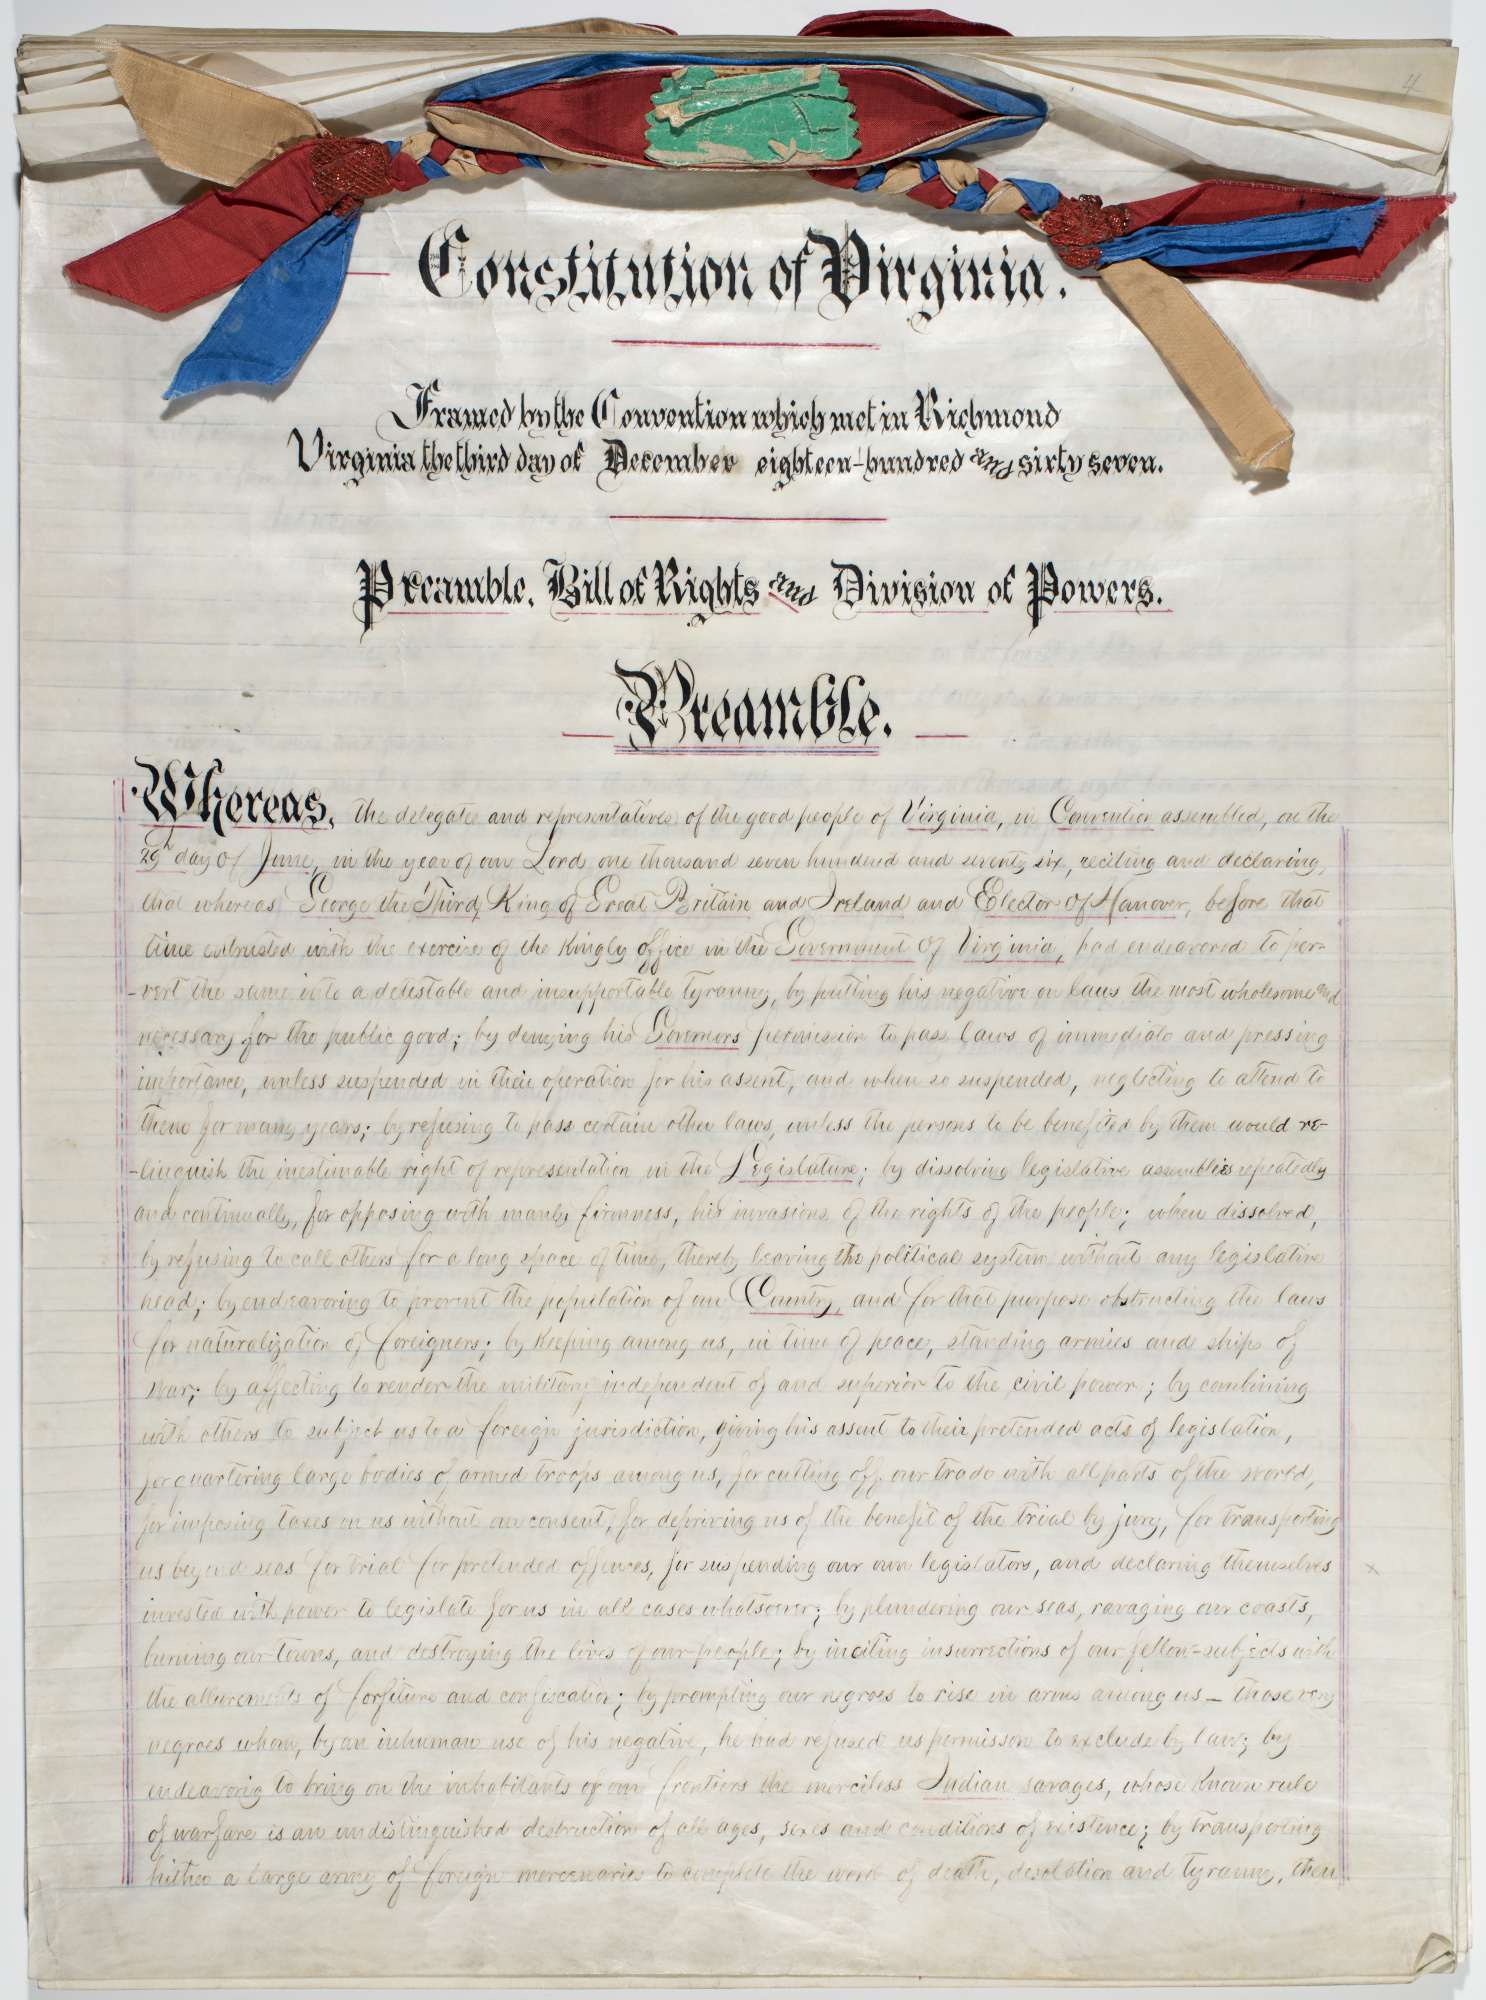 4
Constitution of Virginia.
Framed by the Convention which met in Richmond
Virginia the third day of December eighteen-hundred and sixty seven.
Preamble, Bill of Rights and Division of Powers.
Preamble.
Whereas, the delegates and representatives of the good people of Virginia, in Convention assembled, on the
29th day of June, in the year of our Lord one thousand seven hundred and seventy six, reciting and declaring,
that whereas George the Third, King of Great Britain and Ireland and Elector of Hanover, before that
time entrusted with the exercise of the Kingly office in the Government of Virginia, had endeavored to per-
-vert the same into a detestable and insupportable tyranny, by putting his negative on laws the most wholesome and
necessary for the public good; by denying his Governors permission to pass laws of immediate and pressing
importance, unless suspended in their operation for his assent, and when so suspended, neglecting to attend to
them for many years; by refusing to pass certain other laws, unless the persons to be benefited by them would re-
-linquish the inestimable right of representation in the Legislature; by dissolving legislative assemblies repeatedly
and continually, for opposing with manly firmness, his invasions of the rights of the people; when dissolved,
by refusing to call others for a long space of time, thereby leaving the political system without any legislative
head; by endeavoring to prevent the population of our Country, and for that purpose obstructing the laws
for naturalization of foreigners; by keeping among us, in time of peace, standing armies and ships of
war; by affecting to render the military independent of and superior to the civil power; by combining
with others to subject us to a foreign jurisdiction, giving his assent to their pretended acts of legislation,
for quartering large bodies of armed troops among us, for cutting off our trade with all parts of the world,
for imposing taxes on us without our consent, for depriving us of the benefit of the trial by jury, for transporting
us beyond seas for trial for pretended offences, for suspending our own legislators, and declaring themselves
invested with power to legislate for us in all cases whatsoever; by plundering our seas, ravaging our coasts,
burning our towns, and destroying the lives of our people; by inciting insurrections of our fellow-subjects with
the allurements of forfiture and confiscation; by prompting our negroes to rise in arms among us – those very
negroes whom, by an inhuman use of his negative, he had refused us permisson to exclude by law; by
endeavorig to bring on the inhabitants of our frontiers the merciless Indian savages, whose known rule
of warfare is an undistinguished destruction of all ages, sexes and conditions of existence; by transporting
hither a large army of foreign mercenaries to complete the work of death, desolation and tyranny, then